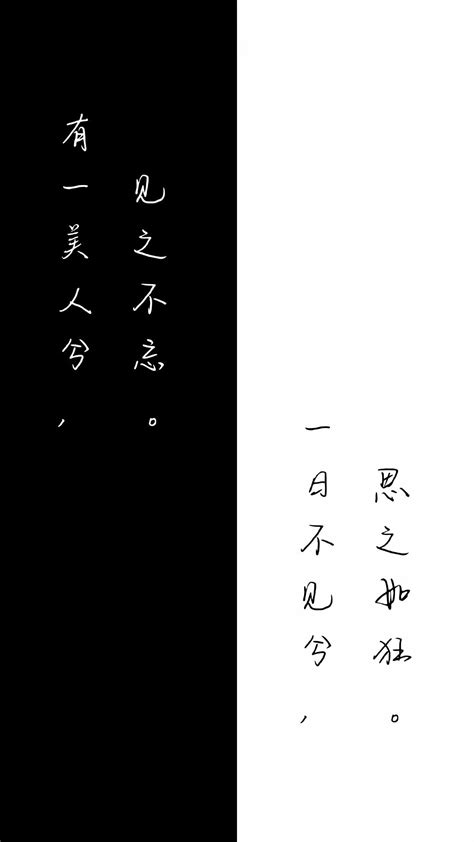 有一美人兮，
见之不忘。
一日不见兮，
思之如狂。